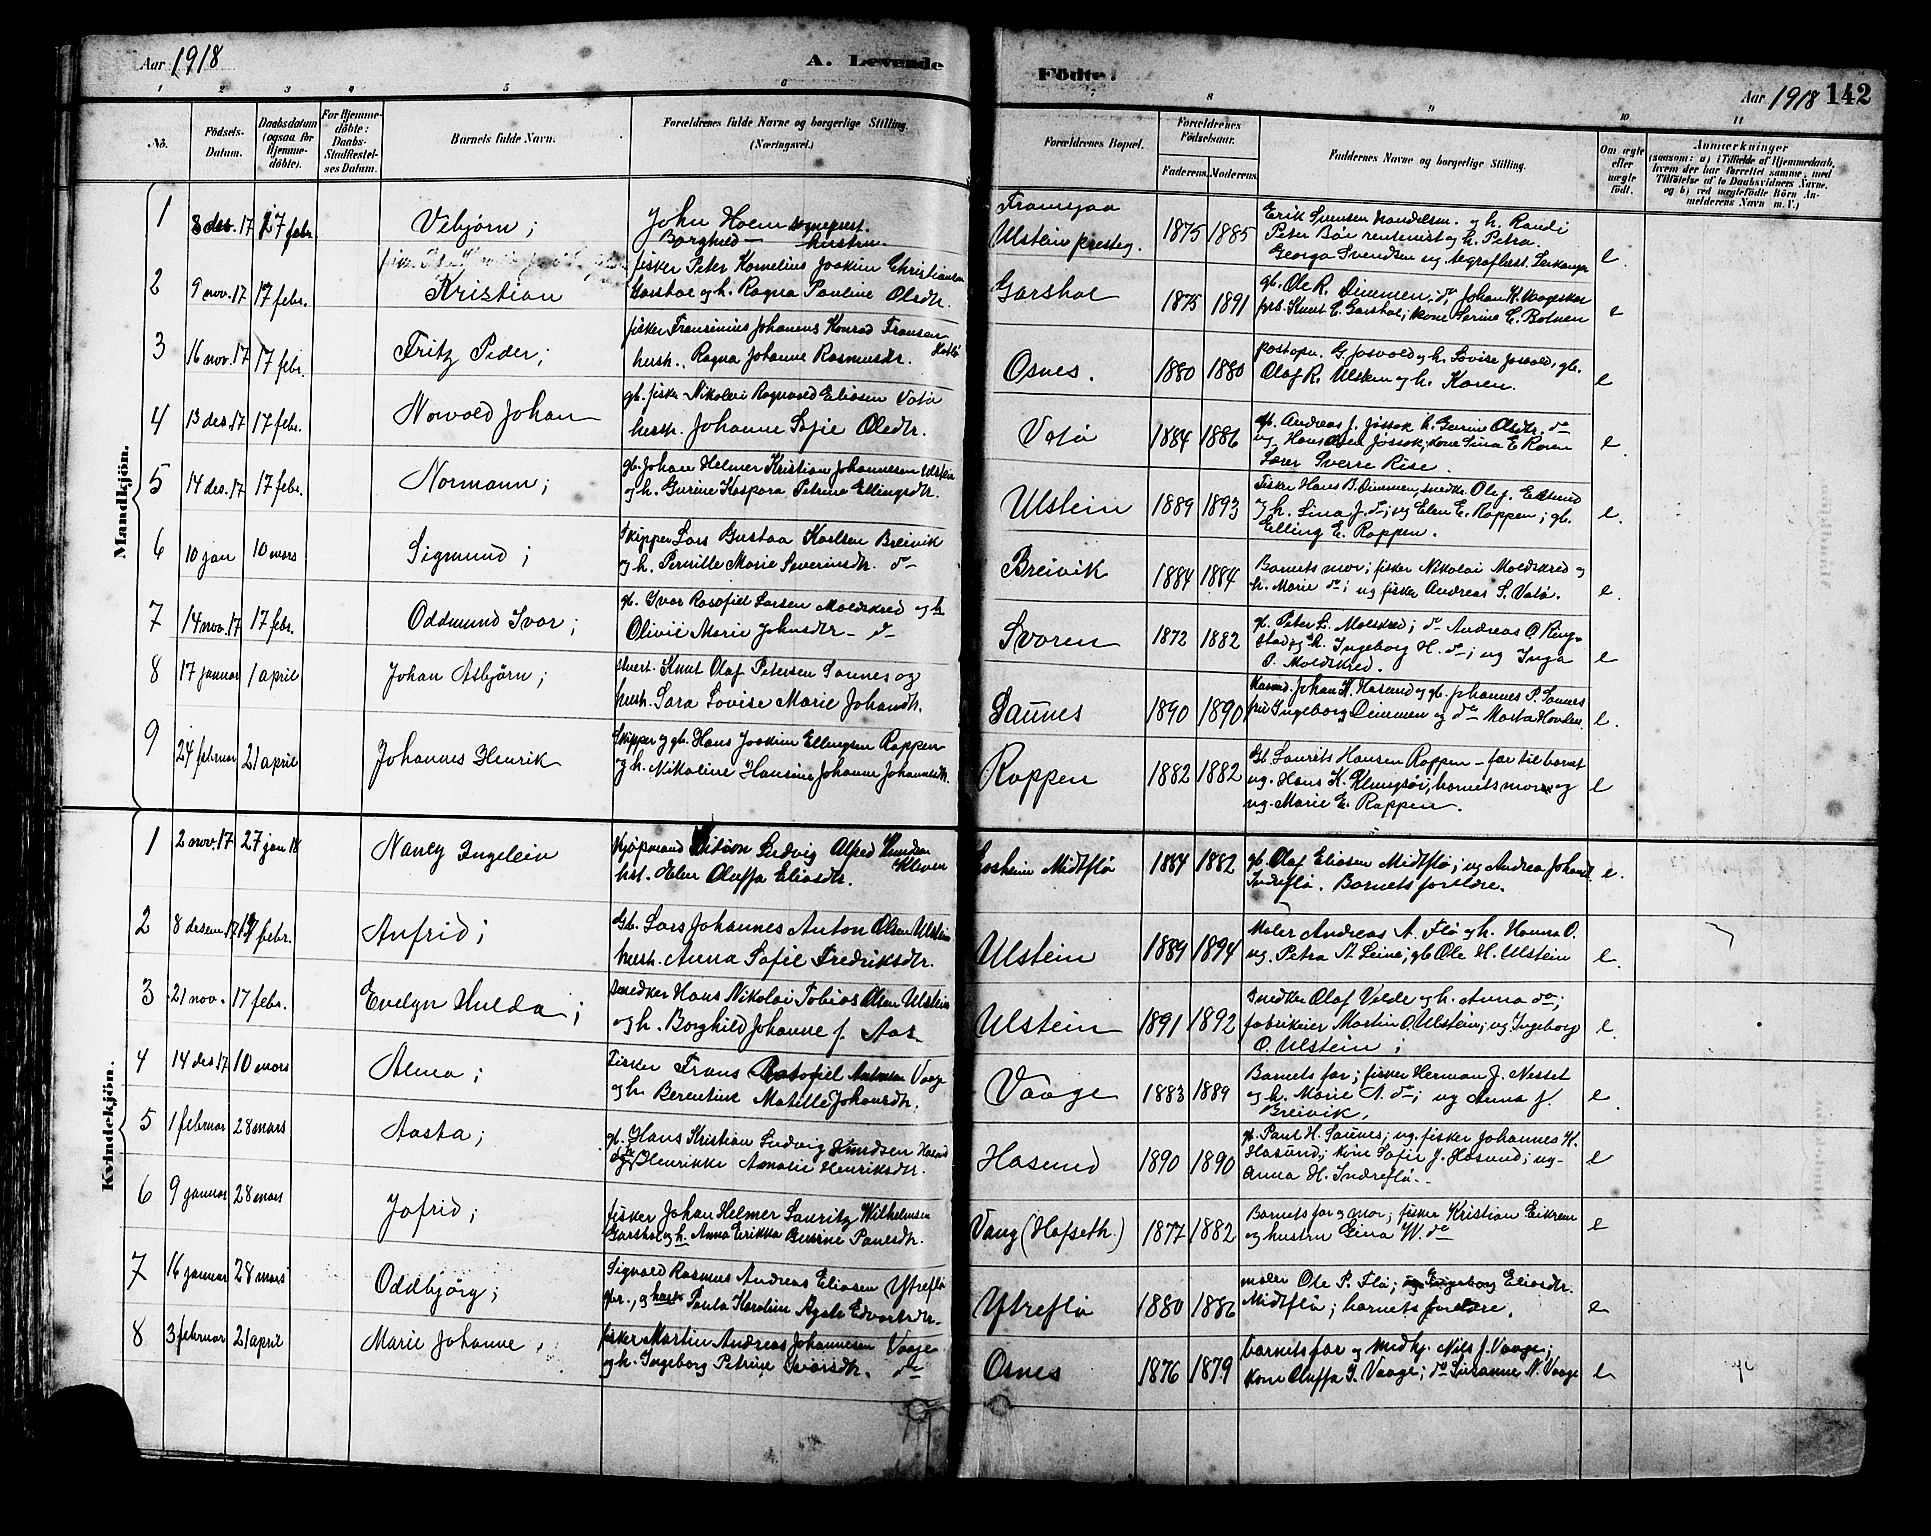 Aar 1918
A. Levende
Födte.
Aar 1918 142
1 2 3 4 5 6 7 8 9 10 11
No.
Födsels-Datum.
Daabsdatum (ogsaa for Hjemme-döbte).
For Hjemme-döbte: Daabs-Stadfæstel-ses Datum.
Barnets fulde Navn.
Forældrenes fulde Navne og borgerlige Stilling.
(Næringsvei.)
Forældrenes Bopæl.
Forældrenes Födselsaar.
Faderens. Moderens.
Faddernes Navne og borgerlige Stilling.
Om ægte eller uægte födt.
Anmærkninger
(saasom: a) i Tilfælde af Hjemmedaab,
hvem der har forrettet samme, med
Tilföielse af to Daabsvidners Navne,
og b) ved uægtefödte Börn An-
melderens Navn m. V.)
Mandkjön.
1 8 des. 17 17 febr. Vebjørn; John Hoem sogneprest.
Borghild — hustru.
Ulstein presteg. 1875 1885 Erik Svensen handelsm. og h. Randi
Peter Bør rentenist og h. Petra.
Georga Svendsen ug e.
2 9 nov. 17 17 febr. Kristian fisker Peter Kornelius Joakim Christiansen
Garshol og h. Ragna Pauline Olsdtr.
Garshol 1875 1891 gb. Ole R. Dimmen; do Johan K. Waageskar
Knut E. Garshol; kone Serine E. Botnen e
3 16 nov. 17 17 febr. Fritz Peder; fisker Fransinius Johannes Konrad Fransen
hustr. Ragna Johanne Rasmusdr.
Osnes. 1880 1880 postopn. G. Josvold og h. Lovise Josvold, gb.
Olaf R. Ulstein og h. Karen. e
4 13 des. 17 17 febr. Norvald Johan gb. fisker Nikolai Ragnvald Eliasen Vatø
hustr. Johanne Sofie Olsdtr.
Vatø 1884 1886 gb. Andreas J. Jøssok h. Gurine Olsdtr. do
ug Hans Olsen Jøssok; kone Sina E. Roren
Lærer Sverre Rise. e
5 14 des. 17 17 febr. Normann; gb. Johan Helmer Kristian Johannesen Ulstein
og h. Gurine Kaspara Petrina Ellingsdtr.
Ulstein 1889 1893 Fisker Hans B. Dimmen, snedkr. Olaf Eiksund
og h. Lina J. do; ug Elen E. Rappen; gb.
Elling E. Rappen. e.
6 10 jan 10 mars Sigmund; Skipper Lars Gustav Karlsen Breivik
og h. Pernille Marie Severinsdtr. do
Breivik 1884 1884 Barnets mor; fisker Nikolai Moldskred og
h. Marie do; ug fisker Andreas S. Vatø. e.
7 14 nov. 17 17 febr. Oddmund Ivar; gb. Ivar Rasofiel Larsen Moldskred og h
Olivie Marie Johnsdtr. do
Svoren 1872 1882 gb. Peter L. Molskred; do Andreas O. Ring-
stad og h. Ingeborg H. do; ug Inga
O. Moldskred. e
8 17 januar 1 april Johan Asbjørn; Knut Olaf Petersen Saunes og
hustr. Sara Lovise Marie Johandtr.
Saunes 1890 1890 Johan K. Hasund og gb. Johannes P. Saunes
Ingeborg Dimmen og do Marta Hovden e.
9 24 februar 21 april Johannes Henrik Skipper og gb. Hans Joakim Ellingsen Rappen
og h. Nikoline Hansine Johanne Johannesdtr.
Rappen 1882 1882 Gb. Laurits Hansen Rappen — far til barnet
ug. Hans K. Klungsør; barnets mor og
ug. Marie E. Rappen. e
Kvindekjön.
1 2 nov. 17 27 jan 18 Nancy Ingelein Kjøpmand Ludvig Alfred Knudsen
Kleven
hst. Elen Oluffa Eliasdtr.
Midtflø 1884 1882 gb. Olaf Eliasen Midtflø; ug Andrea Johandt.
Indreflø. Barnets foreldre. e.
2 8 desem 17 17 febr. Anfrid; Gb. Lars Johannes Anton Olsen Ulstein
hustr. Anna Sofie Fredriksdtr.
Ulstein 1889 1894 Maler Andreas A. Flø og h. Hanna O.
ug. Petra A. Leine; gb Ole H. Ulstein e.
3 21 nov. 17 febr. Evelyn Hulda; snedker Hans Nikolai Tobias Olsen Ulstein
og h. Borghild Johanne f. Aas.
Ulstein 1891 1892 Snedker Olaf Velde og h. Anna do;
fabrikeier Martin O. Ulstein; ug Ingeborg
O. Ulstein; e
4 14 des. 17 10 mars Alma; Fisker Frans Rasofiel Antonsen Vaage
og h. Berentine Matille Johansdtr.
Vaage 1883 1889 Barnets far; fisker Herman J. Nesset
og h. Marie A. do; ug Anna J.
Breivik. e.
5 1 februar 28 mars Aasta; gb. Hans Kristian Ludvig Knudsen Hasund
og h Henrikke Amalie Henriksdtr.
Hasund 1890 1890 gb. Paul H. Saunes; ug. fisker Johannes K.
Hasund; kone Sofie J. Hasund; ug.
Anna H. Indreflø. e
6 9 januar 28 mars Jofrid; fisker Johan Helmer Lauritz Wilhelmsen
Garshol og h. Anna Erikka Gurine Paulsdtr.
Vaag (Hafseth.) 1877 1882 Barnets far og mor; fisker Kristian Eikrem
og hustru Gina W. do e
7 16 januar 28 mars Oddbjørg; Sigvald Rasmus Andreas Eliasen Ytreflø
gbr., og hustr Paula Karoline Agate Edvardsdtr.
Ytreflø 1880 1886 maler Ole P. Flø; ug Ingeborg Eliasdtr.
Midtflø; barnets foreldre. e
8 3 februar 21 april Marie Johanne; fisker Martin Andreas Johannesen Vaage
og h. Ingeborg Petrine Ivarsdtr. do
Osnes 1876 1879 barnets far og medhj. Nils J. Vaage;
kone Oluffa J. Vaage; do Susanne N. Vaage e